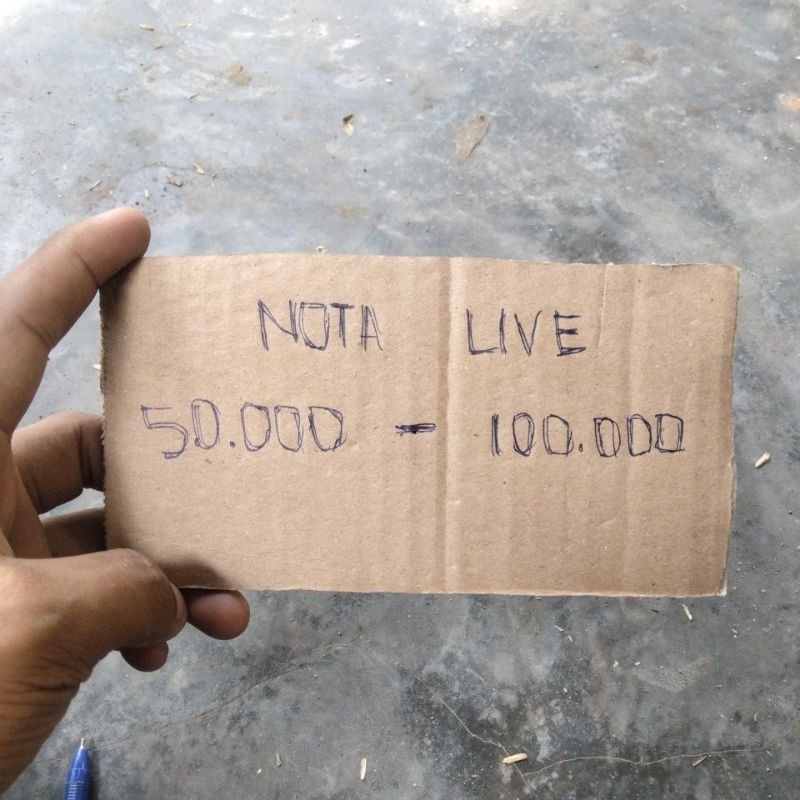 NOTA LIVE
50.000 - 100.000